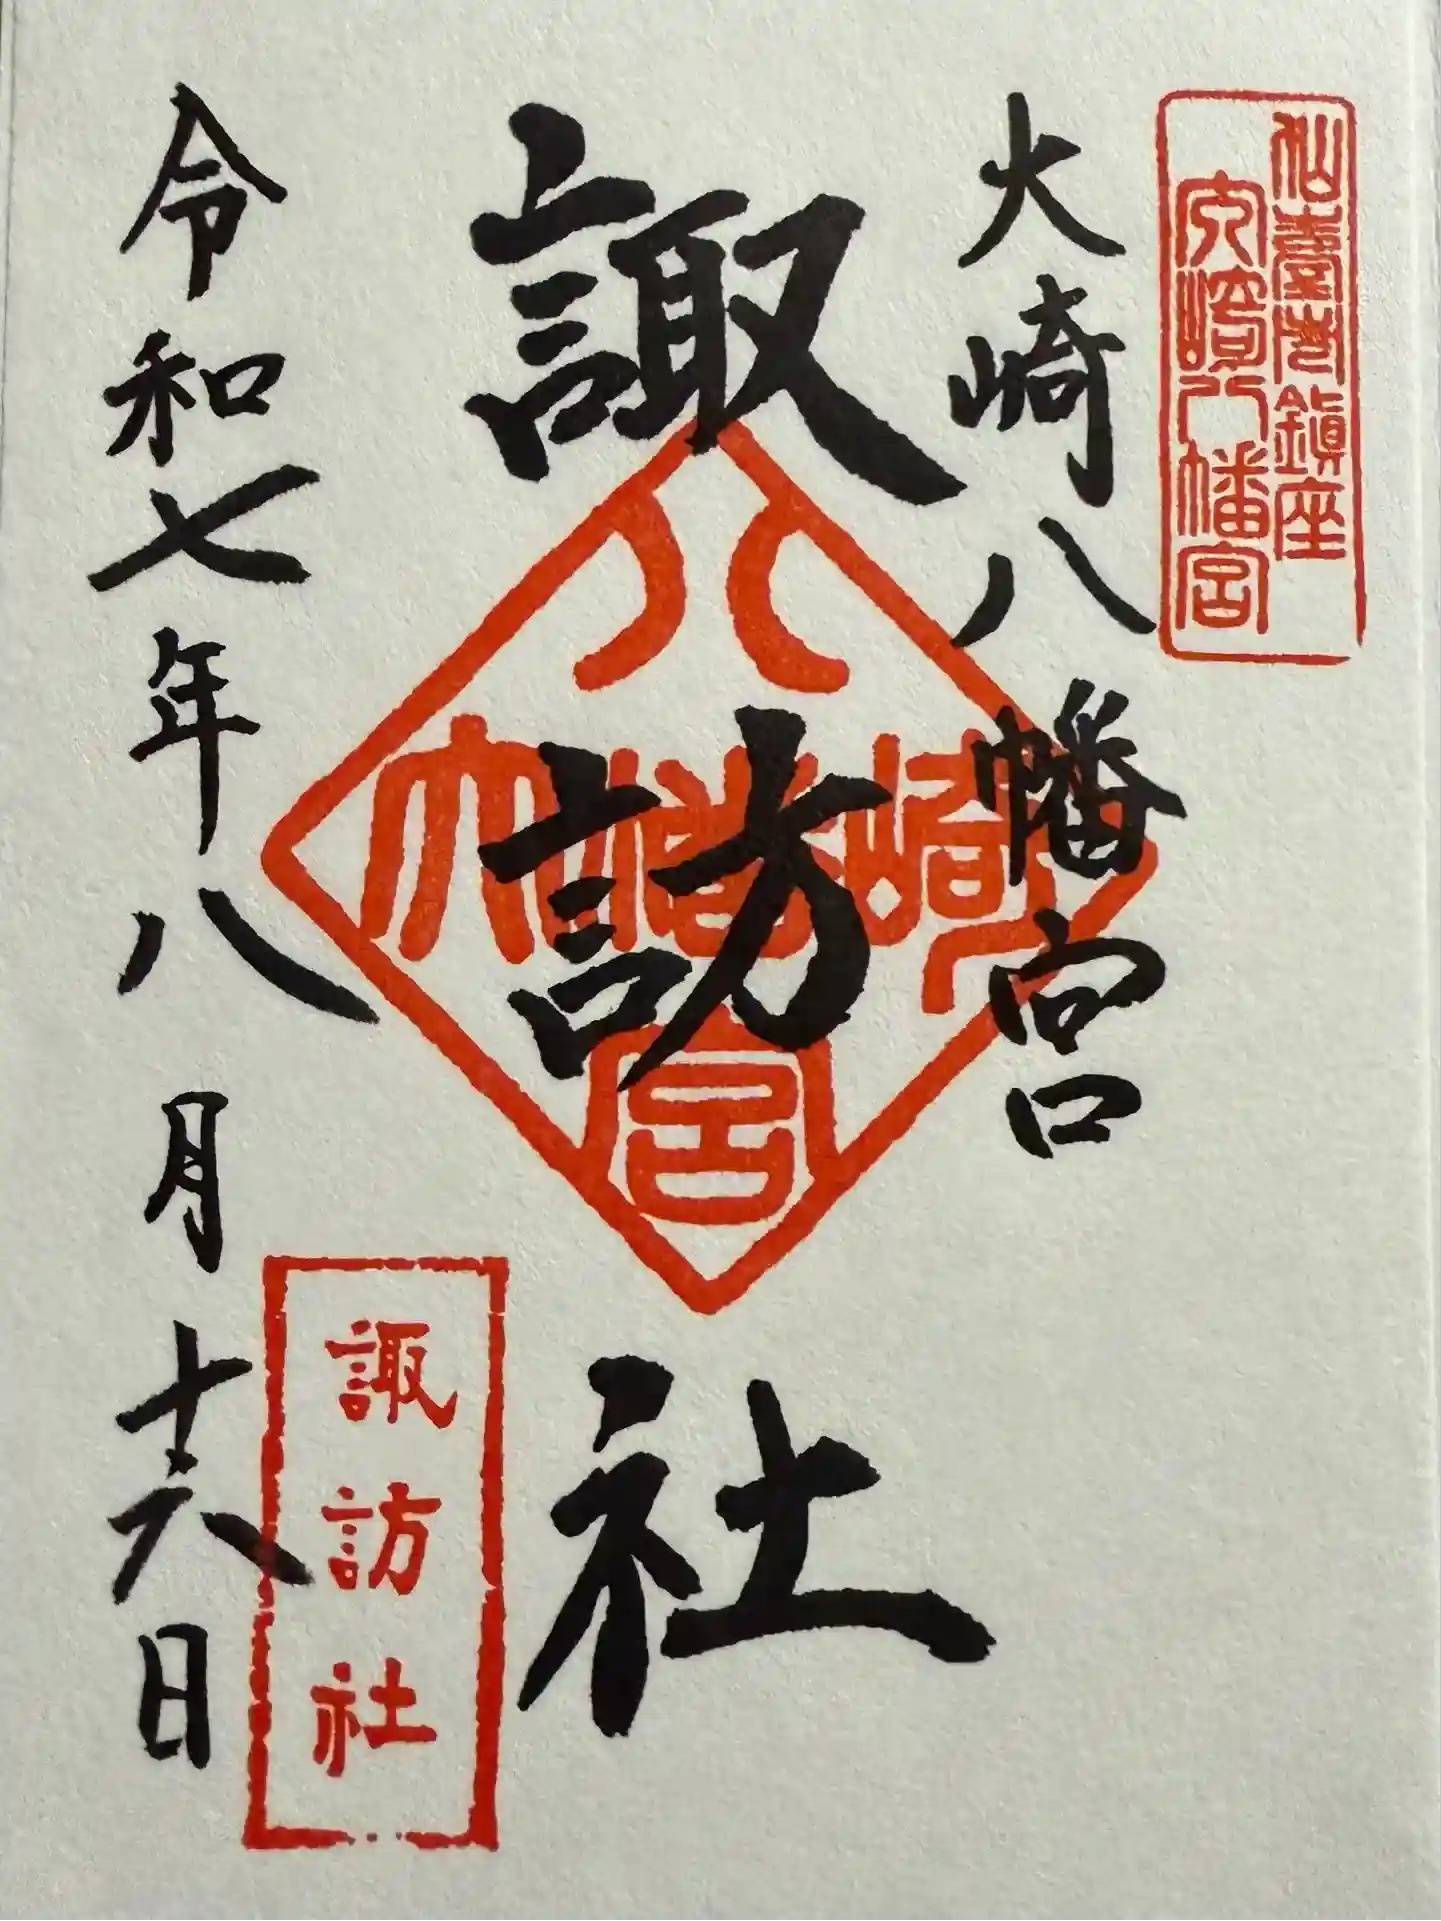 仙臺市鎮座
大崎八幡宮
大崎八幡宮
諏訪社
八
大幡崎
宮
諏訪社
令和七年八月十六日